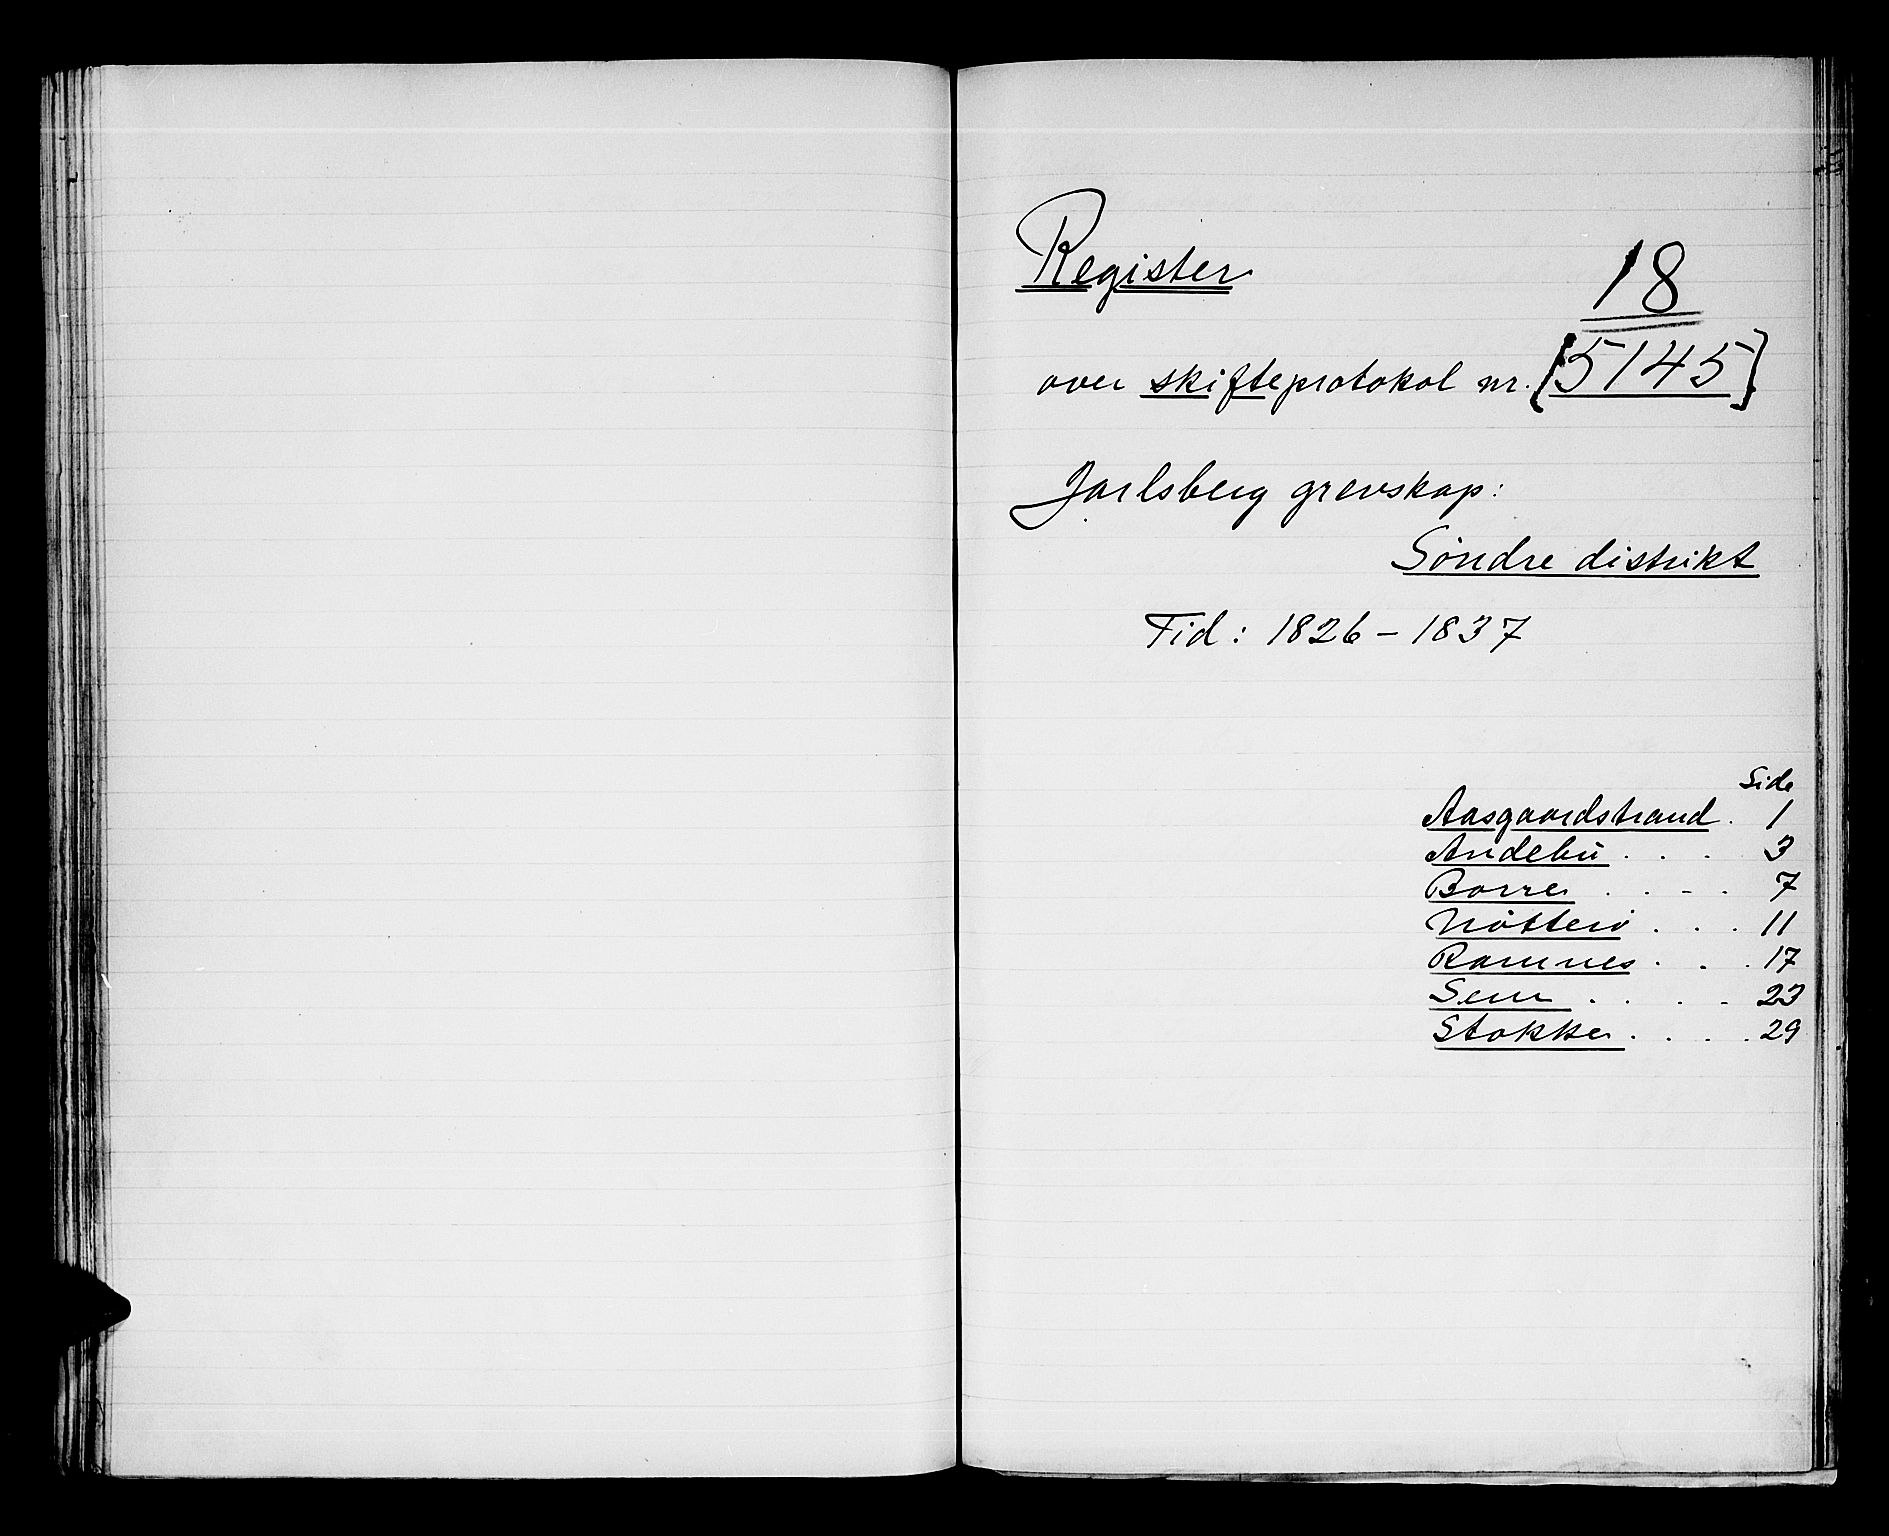 Register
18
over skifteprotokol nr. [5145]
Jarlsberg grevskap:
Søndre distrikt
Tid: 1826 - 1837
Side
Aasgaardstrand . 1
Andebu . . . . 3
Borre . . - . 7
Nøtterø . . . 11
Ramnes . . . 17
Sem . . . - 23
Stokke . . . . 29